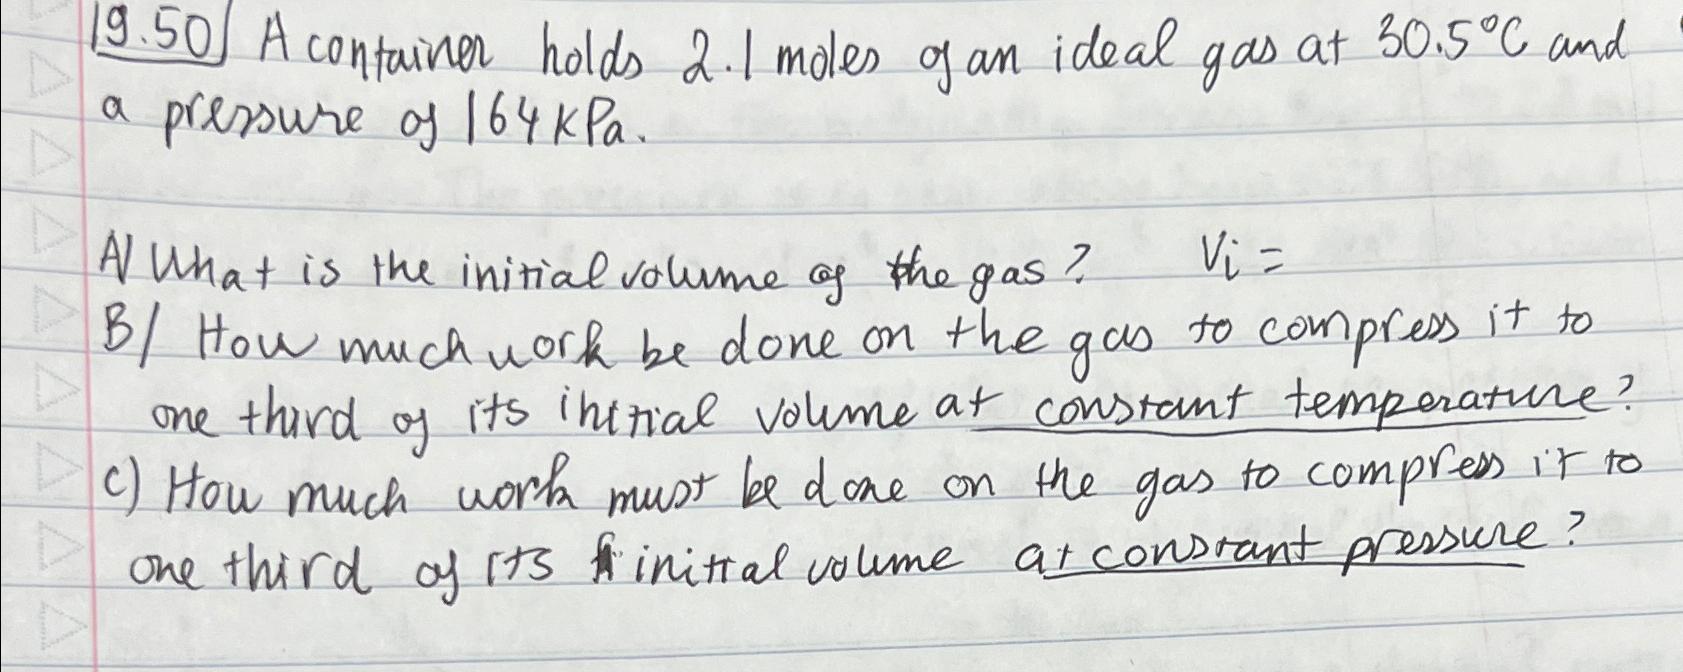 19.50 A container holds 2.1 moles of an ideal gas at 30.5°C and
a pressure of 164 kPa.
A/ What is the initial volume of the gas? Vi =
B/ How much work be done on the gas to compress it to
one third of its initial volume at constant temperature?
C) How much work must be done on the gas to compress it to
one third of its initial volume at constant pressure?